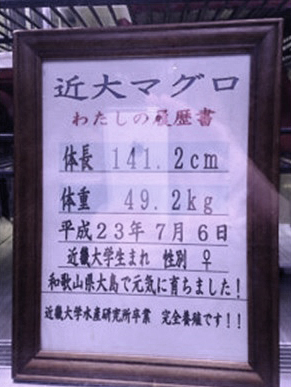 近大マグロ
わたしの履歴書
体長 141.2cm
体重 49.2kg
平成23年7月6日
近畿大学生まれ 性別 ♀
和歌山県大島で元気に育ちました!
近畿大学水産研究所卒業 完全養殖です!!